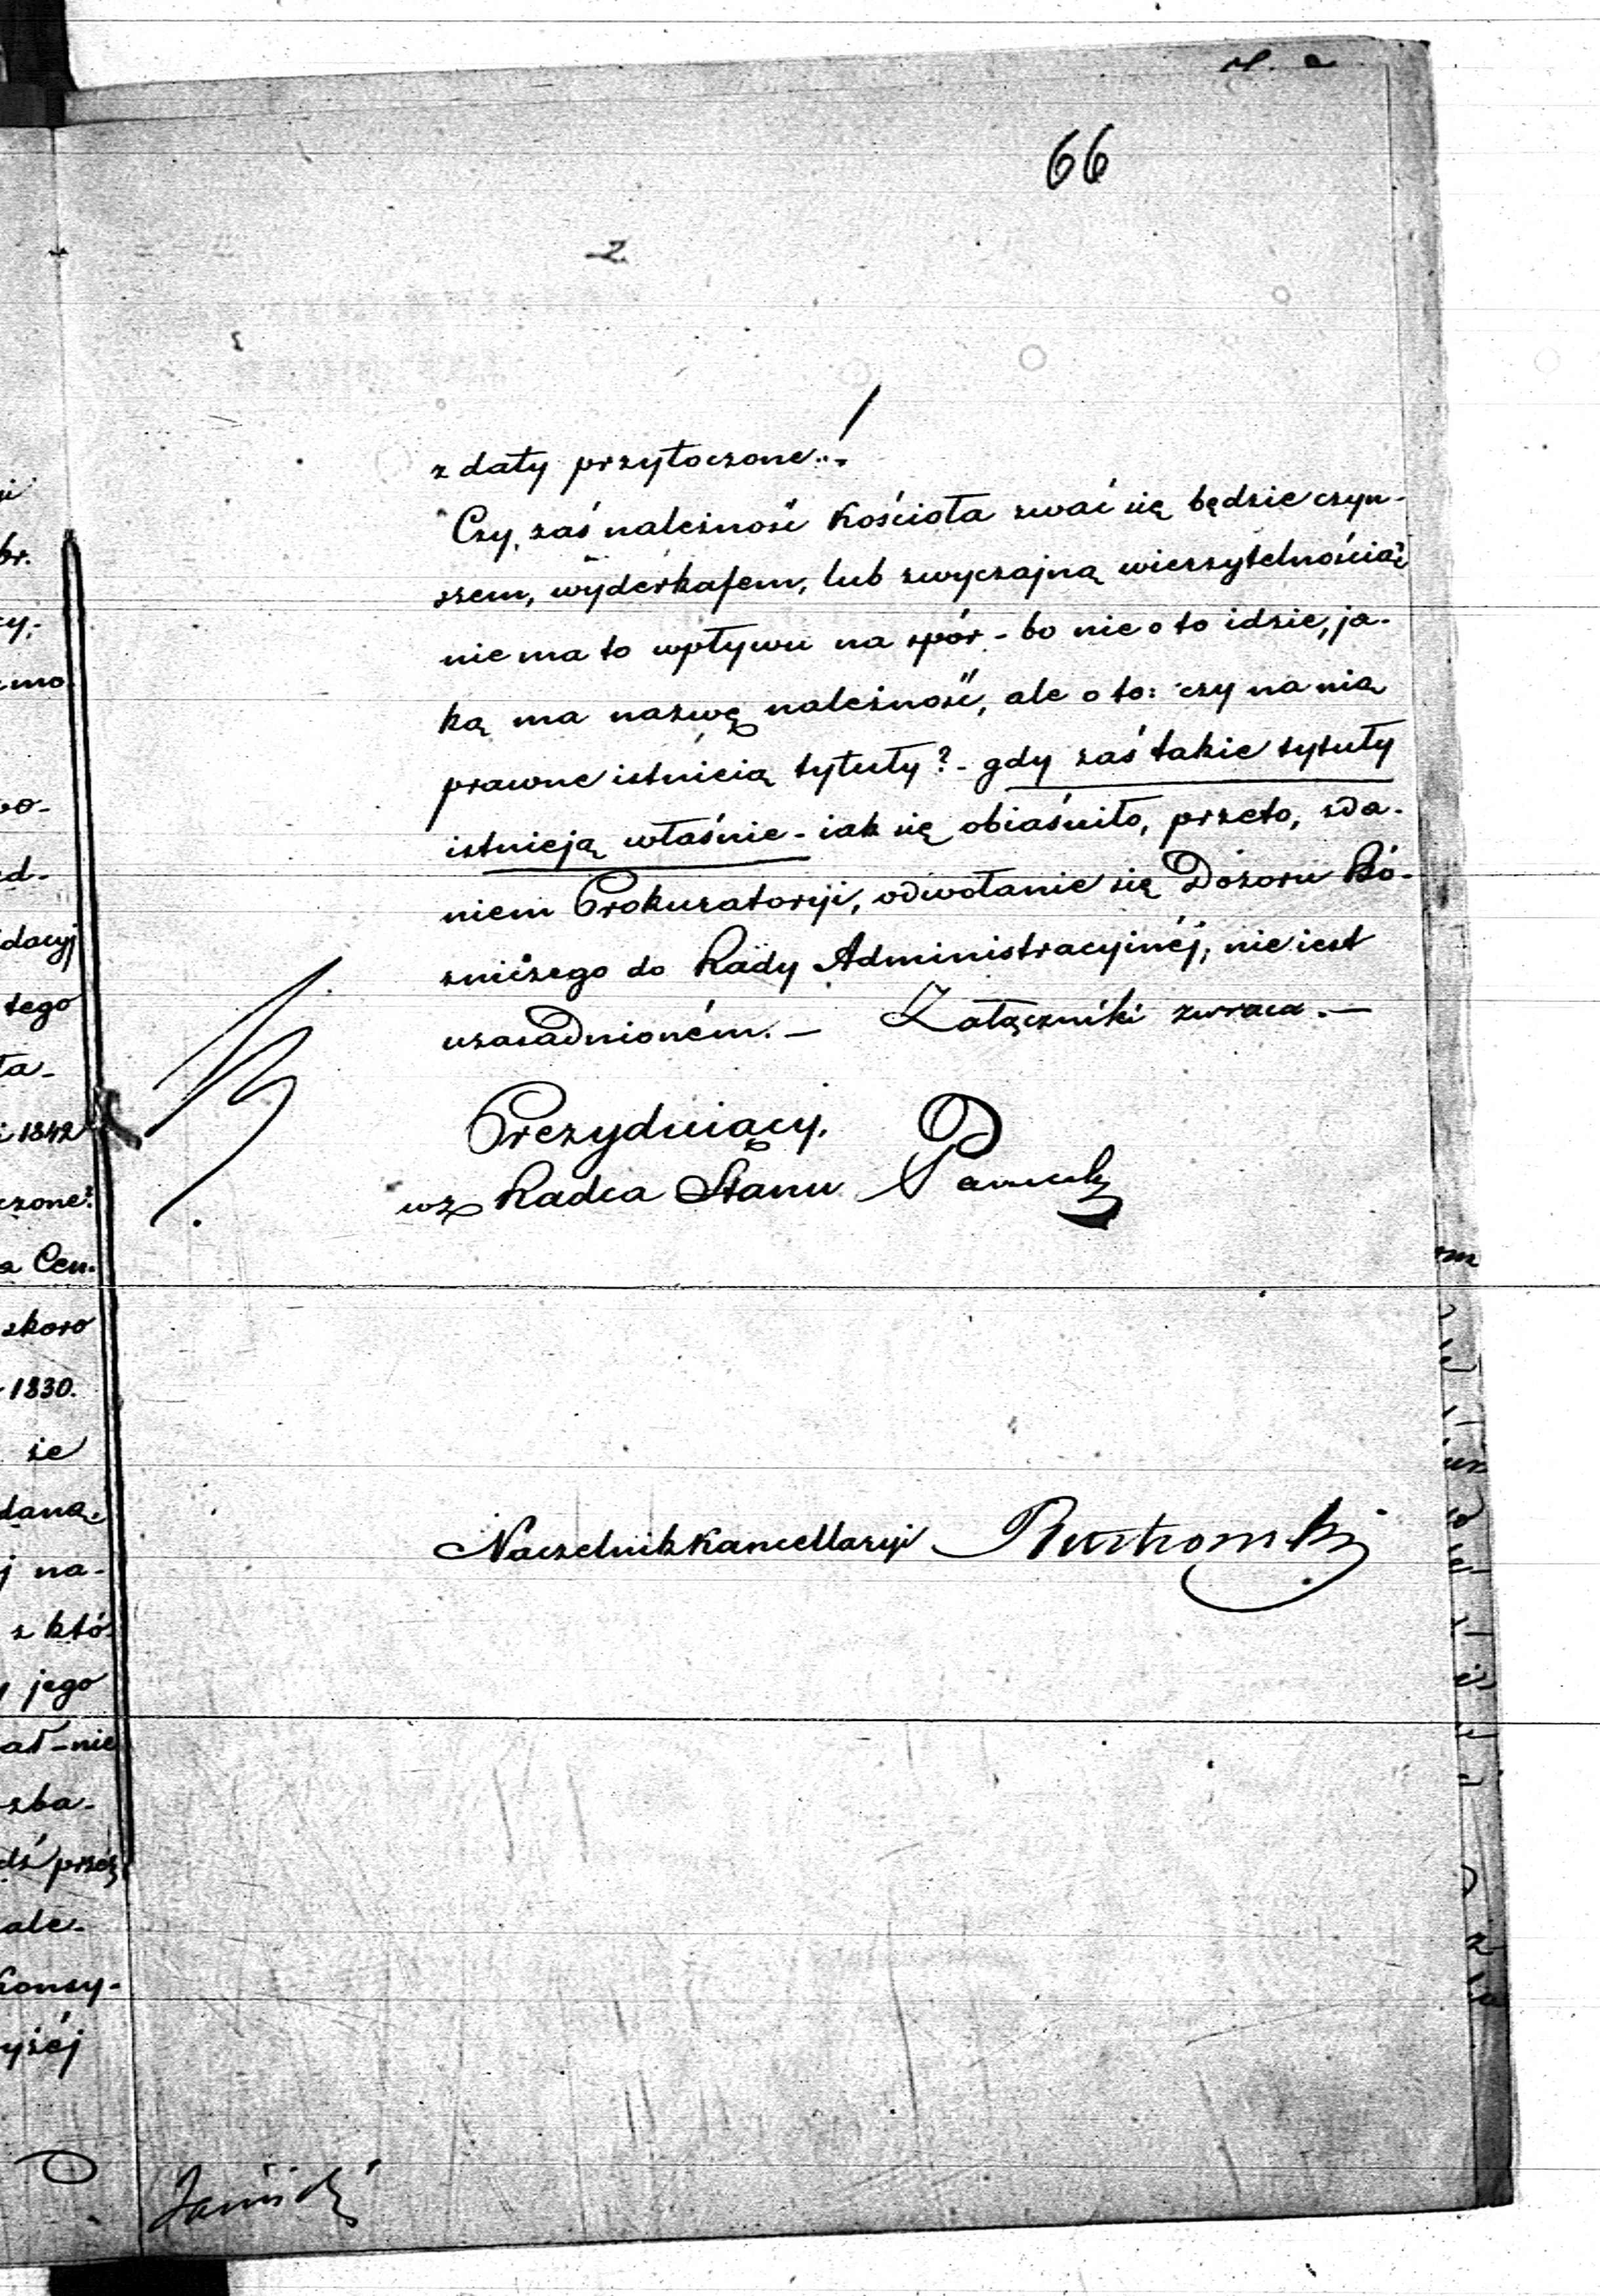 66
2
z daty przytoczone.
Czy zaś należność Kościoła zwać się będzie czyn-
szem, wyderkafem, lub zwyczajną wierzytelnością?
nie ma to wpływu na spór - bo nie o to idzie, ja-
ką ma nazwę należność, ale o to: czy na nią
prawne istnieią tytuły? - gdy zaś takie tytuły
istnieją właśnie - iak się obiaśniło, przeto, zda-
niem Prokuratoryi, odwołanie się Dozoru Bó-
żniczego do Rady Administracyinéj, nie iest
uzasadnioném. - Załączniki zwraca. -
Prezyduiący.
wz Radca Stanu
Naczelnik Kancellaryi
br.
mo
wo-
tego
ta-
i 1842
a Cen.
skoro
1830.
sie
daną.
j na-
z któ-
jego
ał - nie
zba-
przez
ale-
Konsy-
yżéj